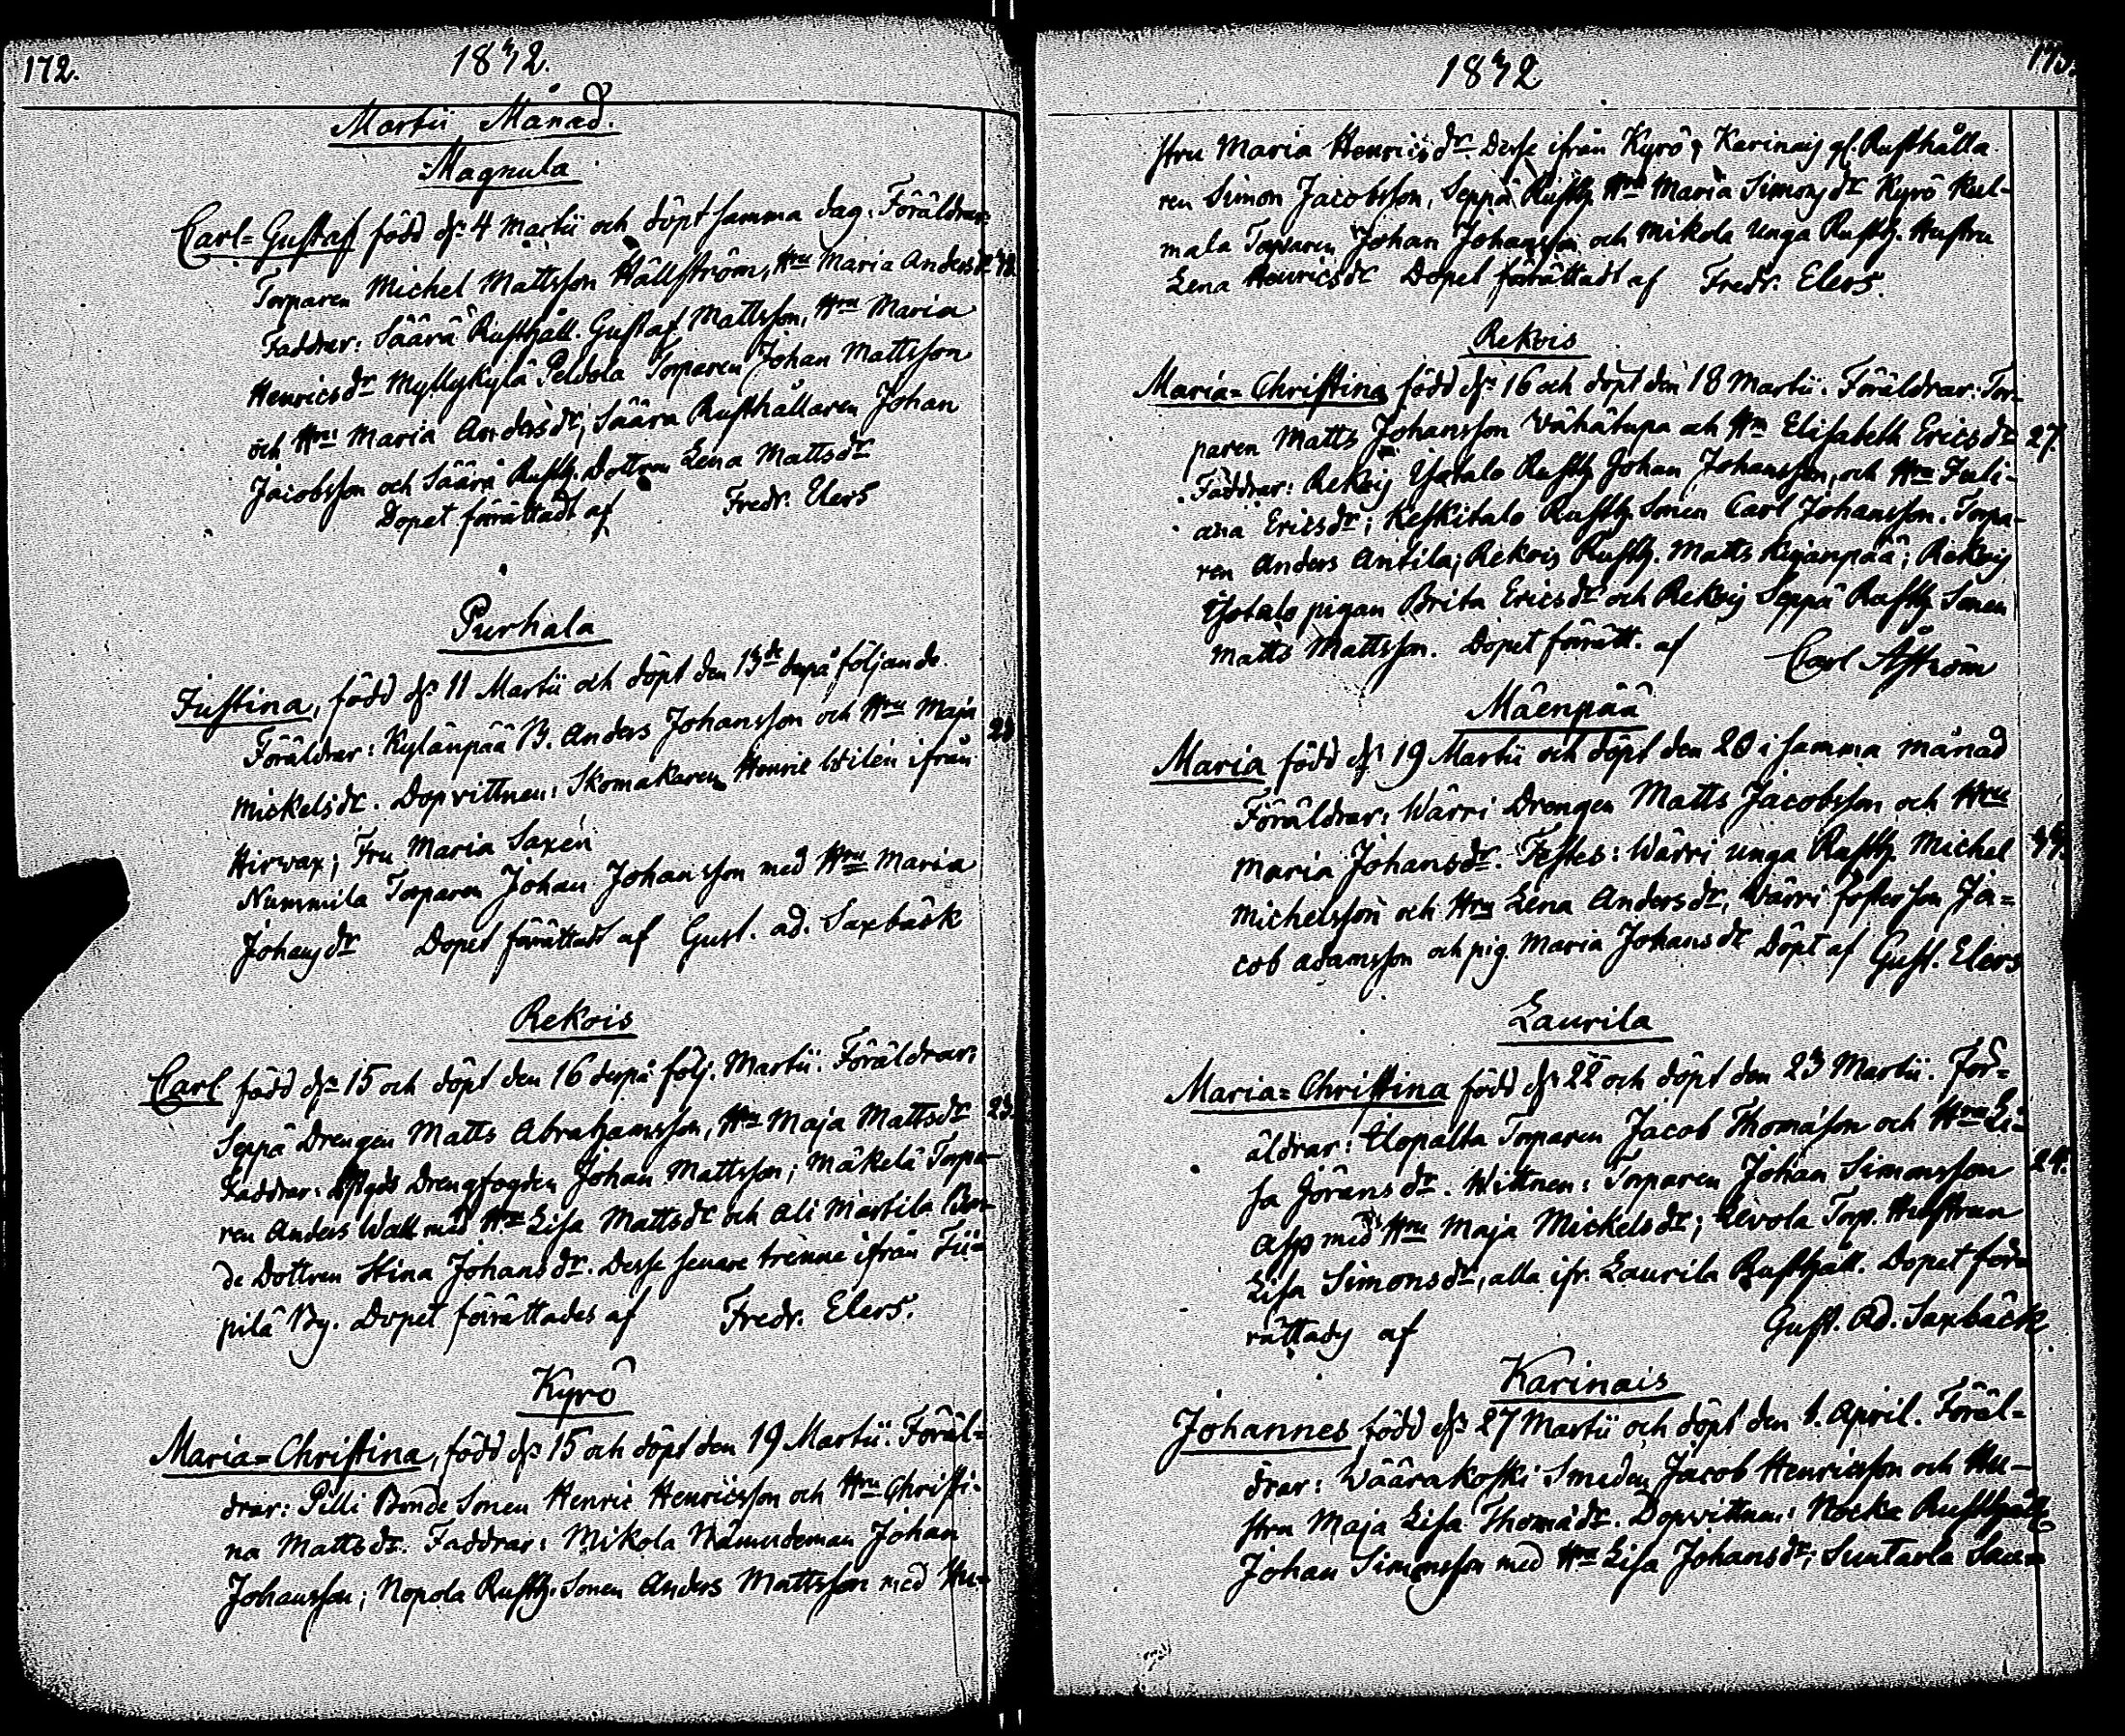 172.
1832.
Martii Månad.
Magnula
Carl=Gustaf född d. 4 Martii och döpt samma dag. Föräldrar:
Torparen Michel Mattsson Hällström, Hru Maria Andersdr
Faddrar: Säärä Rusthåll. Gustaf Mattsson, Hru Maria
Henricsdr Myllykylä Peldola Torparen Johan Mattsson
och Hru Maria Andersdr; Säärä Rusthållaren Johan
Jacobsson och Säärä Rusth. Dottren Lena Mattsdr
Dopet förrättadt af Fredr. Elers
Purhala
Justina, född d. 11 Martii och döpt den 13de derpå följande.
Föräldrar: Kylänpää B. Anders Johansson och Hru Maja
Mickelsdr. Dopvittnen: Skomakaren Henric Wilén ifrån
Hirvax; Fru Maria Saxén
Nummila Torparen Johan Johansson med Hru Maria
Johansdr Dopet förrättadt af Gust. ad. Saxbäck
Rekois
Carl född d. 15 och döpt den 16 derpå följ. Martii. Föräldrar:
Seppä Drengen Matts Abrahamsson, Hru Maja Mattsdr 23.
Faddrar: Drengfogden Johan Mattsson; Mäkelä Torpa-
ren Anders Wall med Hru Lisa Mattsdr och Ali Märtila Bon-
de Dottren Stina Johansdr. Desse senare trenne ifrån Tii=
pilä By. Dopet förrättades af Fredr. Elers.
Kyrö
Maria=Christina, född d. 15 och döpt den 19 Martii. Föräl=
drar: Pilli Bonde Sonen Henric Henricsson och Hru Christi-
na Mattsdr. Faddrar: Mikola Nämndeman Johan
Johansson; Nopola Rusth. Sonen Anders Mattsson med Hu=
1832
173.
stru Maria Henricsdr. Desse ifrån Kyrö; Karinais gl. Rusthålla-
ren Simon Jacobsson, Seppä Rusth. Hru Maria Simonsdr Kyrö Kul-
mala Torparen Johan Johansson och Mikola Unga Rusth. Hustru
Lena Henricsdr Dopet förrättadt af Fredr. Elers.
Rekois
Maria=Christina född d. 16 och döpt den 18 Martii. Föräldrar: Tor-
paren Matts Johansson Vähätupa och Hru Elisabeth Ericsdr 27.
Faddrar: Rekois Ylotalo Rusth. Johan Johansson, och Hru Juli-
ana Ericsdr; Keskitalo Rusth. Sonen Carl Johansson. Torpa-
ren Anders Antila; Rekois Rusth. Matts Kujanpää; Rekois
Ylotalo pigan Brita Ericsdr och Rekois Seppä Rusth. Sonen
Matts Mattsson. Dopet förrätt. af Carl Åström
Mäenpää
Maria född d. 19 Martii och döpt den 20 i samma månad
Föräldrar: Wärri Drengen Matts Jacobsson och Hru
Maria Johansdr. Testes: Wärri unga Rusth. Michel
Michelsson och Hru Lena Andersdr, Wärri foster son Ja=
cob Adamsson och pig. Maria Johansdr Döpt af Gust. Elers
Laurila
Maria=Christina född d. 22 och döpt den 23 Martii. För=
äldrar: Ulopalta Torparen Jacob Thomasson och Hru Li-
sa Jöransdr. Wittnen: Torparen Johan Simonsson 24.
Asp med Hru Maja Mickelsdr; Levola Torp. Hustrun
Lisa Simonsdr, alla ifr. Laurila Rusthåll. Dopet för-
rättads af Gust. Ad. Saxbäck
Karinais
Johannes född d. 27 Martii och döpt den 1. April. Föräl=
drar: Wäärakoski Smeden Jacob Henricsson och Hu-
stru Maja Lisa Thomasdr. Dopvittnen: Rusthåll.
Johan Simonsson med Hru Lisa Johansdr; Suntarla